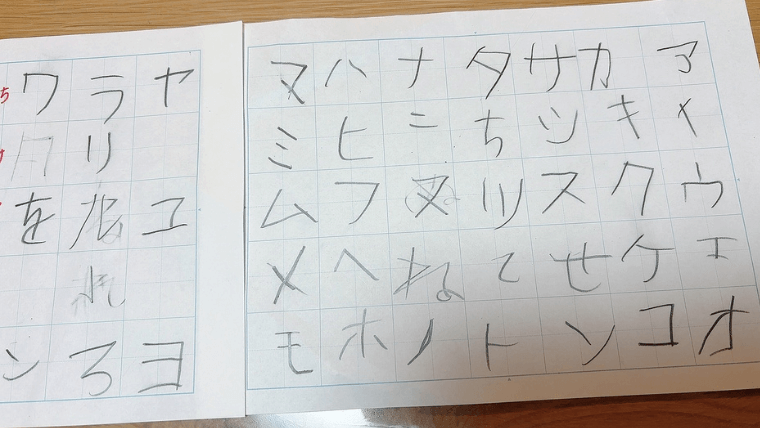 アイウエオ
カキクケコ
サツスせン
タちツてト
ナニヌねノ
ハヒフヘホ
マミムメモ
ヤユヨ
ラリれろ
ワをン
ち